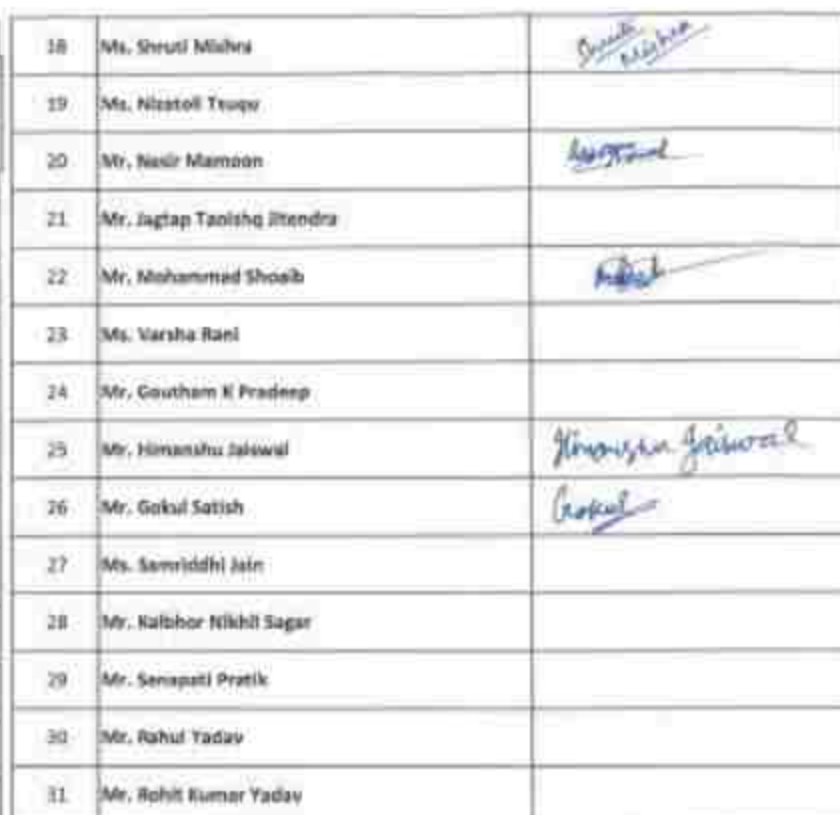 18 Ms. Shruti Mishra Shruti Mishra
19 Ms.
20 Mr. Nasir Mamoon
21 Mr. Jagtap Tanishq Jitendra
22 Mr. Mohammad Shoaib
23 Ms. Varsha Rani
24 Mr. Goutham K Pradeep
25 Mr. Himanshu Jaiswal Himanshu Jaiswal
26 Mr. Gokul Satish Gokul
27 Ms. Samriddhi Jain
28 Mr. Kalbhor Nikhil Sagar
29 Mr. Senapati Pratik
30 Mr. Rahul Yadav
31 Mr. Rohit Kumar Yadav